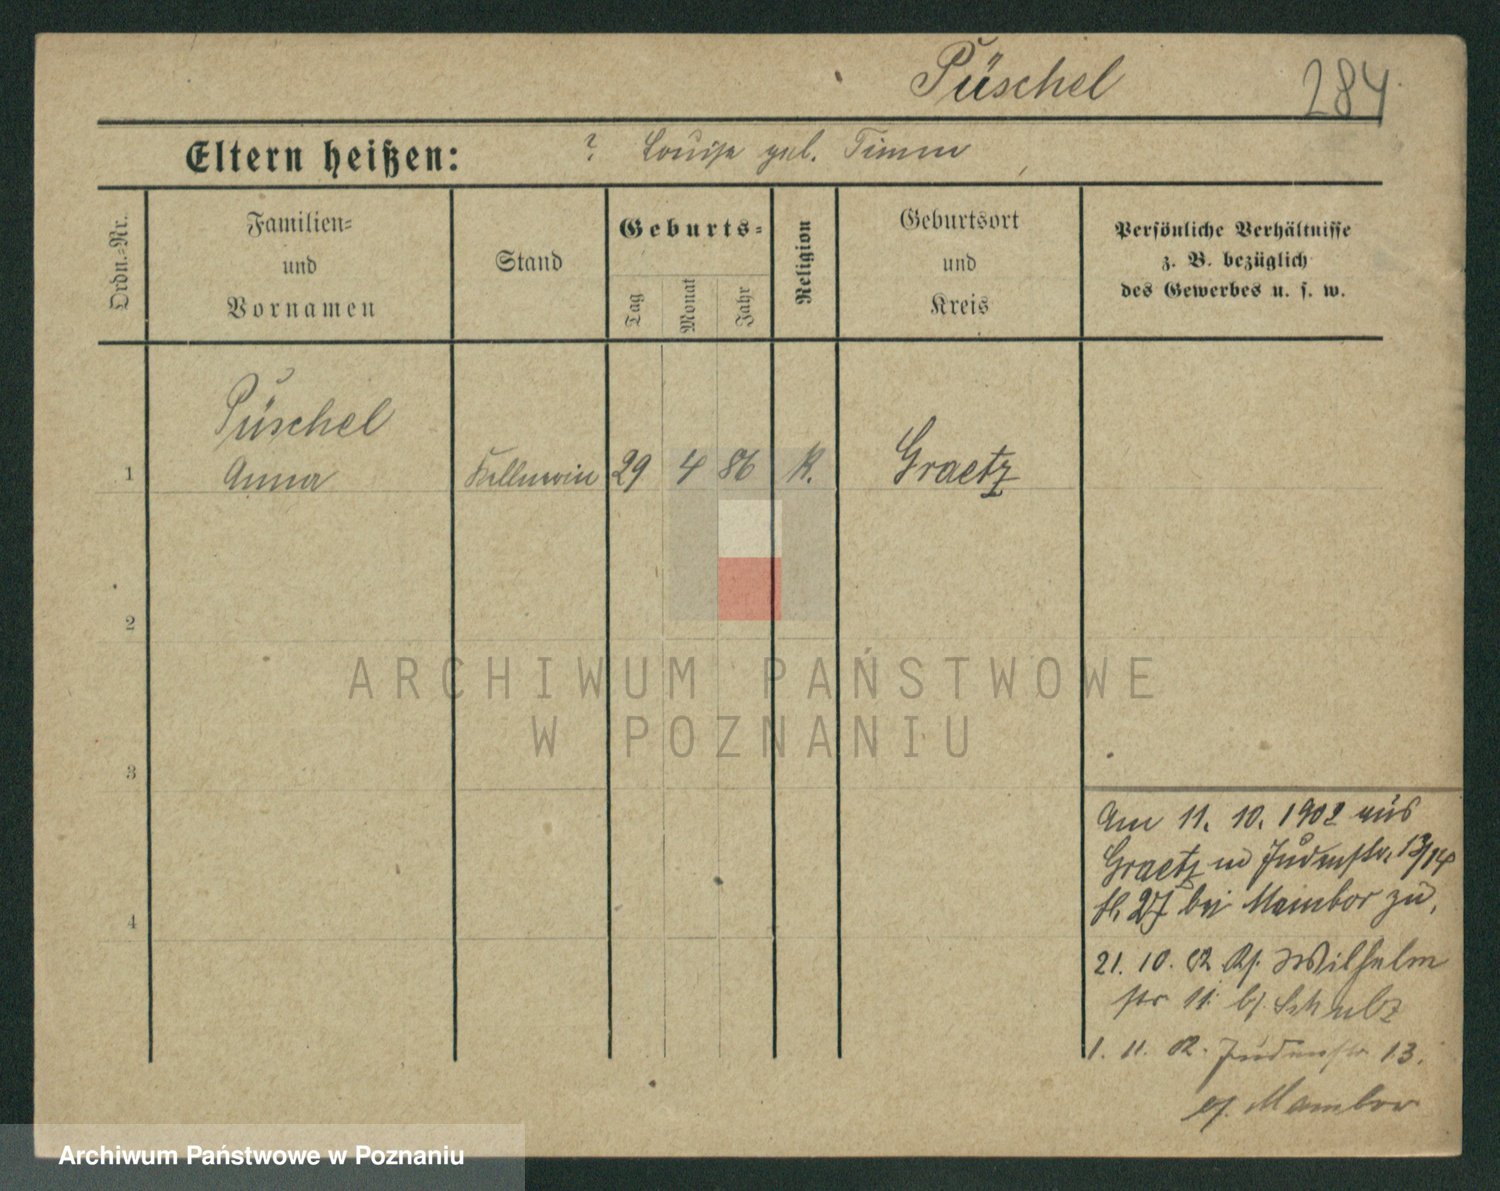 Püschel
284
Eltern heißen: ? Louise geb. Timm
Ordn.-Nr.
Familien-
und
Vornamen
Stand
Geburts-
Tag
Monat
Jahr
Religion
Geburtsort
und
Kreis
Persönliche Verhältnisse
z. B. bezüglich
des Gewerbes u. s. w.
Püschel
1 Anna Kellnerin 29 4 86 K. Graetz
2
3
4
Am 11. 10. 1902 aus
Graetz Judenstr. 13/14
bei Mambor zu.
21. 10. 02 Wilhelm
str 11. bj. Schulz
1. 11. 02. Judenstr 13.
Mambor
ARCHIWUM PAŃSTWOWE
W POZNANIU
Archiwum Państwowe w Poznaniu